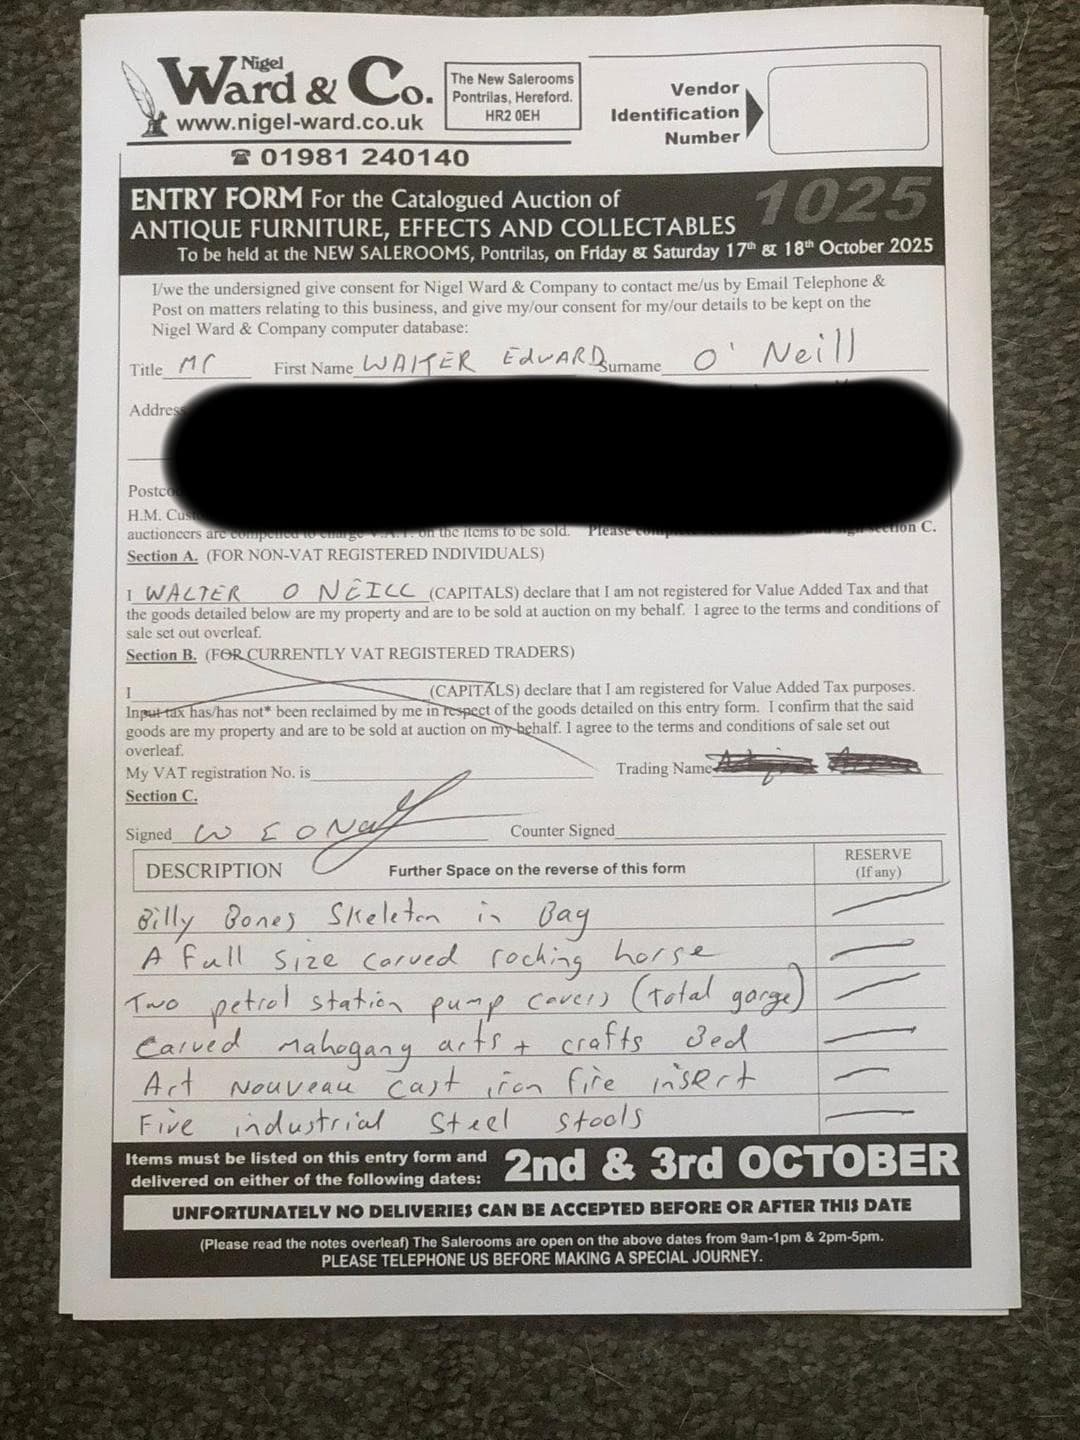 Nigel
Ward & Co.
www.nigel-ward.co.uk
☎ 01981 240140
The New Salerooms
Pontrilas, Hereford.
HR2 0EH
Vendor
Identification
Number
1025
ENTRY FORM For the Catalogued Auction of
ANTIQUE FURNITURE, EFFECTS AND COLLECTABLES
To be held at the NEW SALEROOMS, Pontrilas, on Friday & Saturday 17th & 18th October 2025
I/we the undersigned give consent for Nigel Ward & Company to contact me/us by Email Telephone &
Post on matters relating to this business, and give my/our consent for my/our details to be kept on the
Nigel Ward & Company computer database:
Title Mr First Name WALTER EDWARD Surname O' Neill
Address
H.M.
auctioneers are compelled to charge V.A.T. on the items to be sold. Please Section C.
Section A. (FOR NON-VAT REGISTERED INDIVIDUALS)
I WALTER O NEILL (CAPITALS) declare that I am not registered for Value Added Tax and that
the goods detailed below are my property and are to be sold at auction on my behalf. I agree to the terms and conditions of
sale set out overleaf.
Section B. (FOR CURRENTLY VAT REGISTERED TRADERS)
I (CAPITALS) declare that I am registered for Value Added Tax purposes.
Input tax has/has not* been reclaimed by me in respect of the goods detailed on this entry form. I confirm that the said
goods are my property and are to be sold at auction on my behalf. I agree to the terms and conditions of sale set out
overleaf.
My VAT registration No. is Trading Name
Section C.
Signed W E Counter Signed
DESCRIPTION Further Space on the reverse of this form RESERVE
(If any)
Billy Bones Skeleton in Bag
A full size carved rocking horse
Two petrol station pump covers (total garge)
Carved Mahogany arts + crafts Bed
Art Nouveau cast iron fire insert
Five industrial Steel stools
Items must be listed on this entry form and
delivered on either of the following dates:
2nd & 3rd OCTOBER
UNFORTUNATELY NO DELIVERIES CAN BE ACCEPTED BEFORE OR AFTER THIS DATE
(Please read the notes overleaf) The Salerooms are open on the above dates from 9am-1pm & 2pm-5pm.
PLEASE TELEPHONE US BEFORE MAKING A SPECIAL JOURNEY.